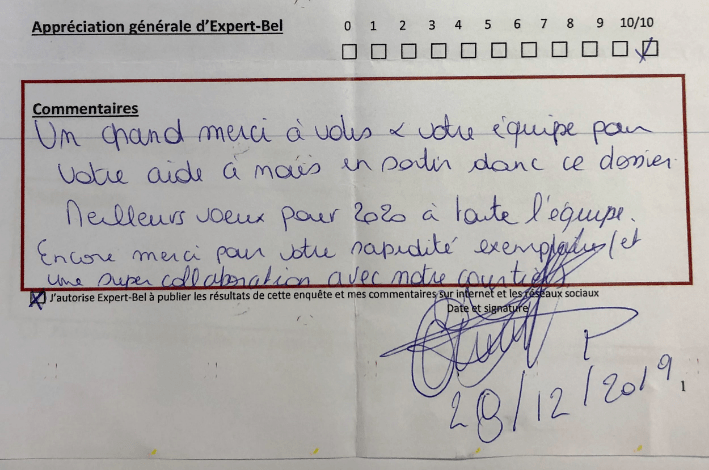 Appréciation générale d'Expert-Bel
0 1 2 3 4 5 6 7 8 9 10/10
Commentaires
Un grand merci à vous & votre équipe pour
votre aide à nous en sortir dans ce dossier.
Meilleurs voeux pour 2020 à toute l'équipe.
Encore merci pour votre rapidité exemplaire et
une super collaboration avec notre
J'autorise Expert-Bel à publier les résultats de cette enquête et mes commentaires sur internet et les réseaux sociaux
Date et signature
28/12/2019
1